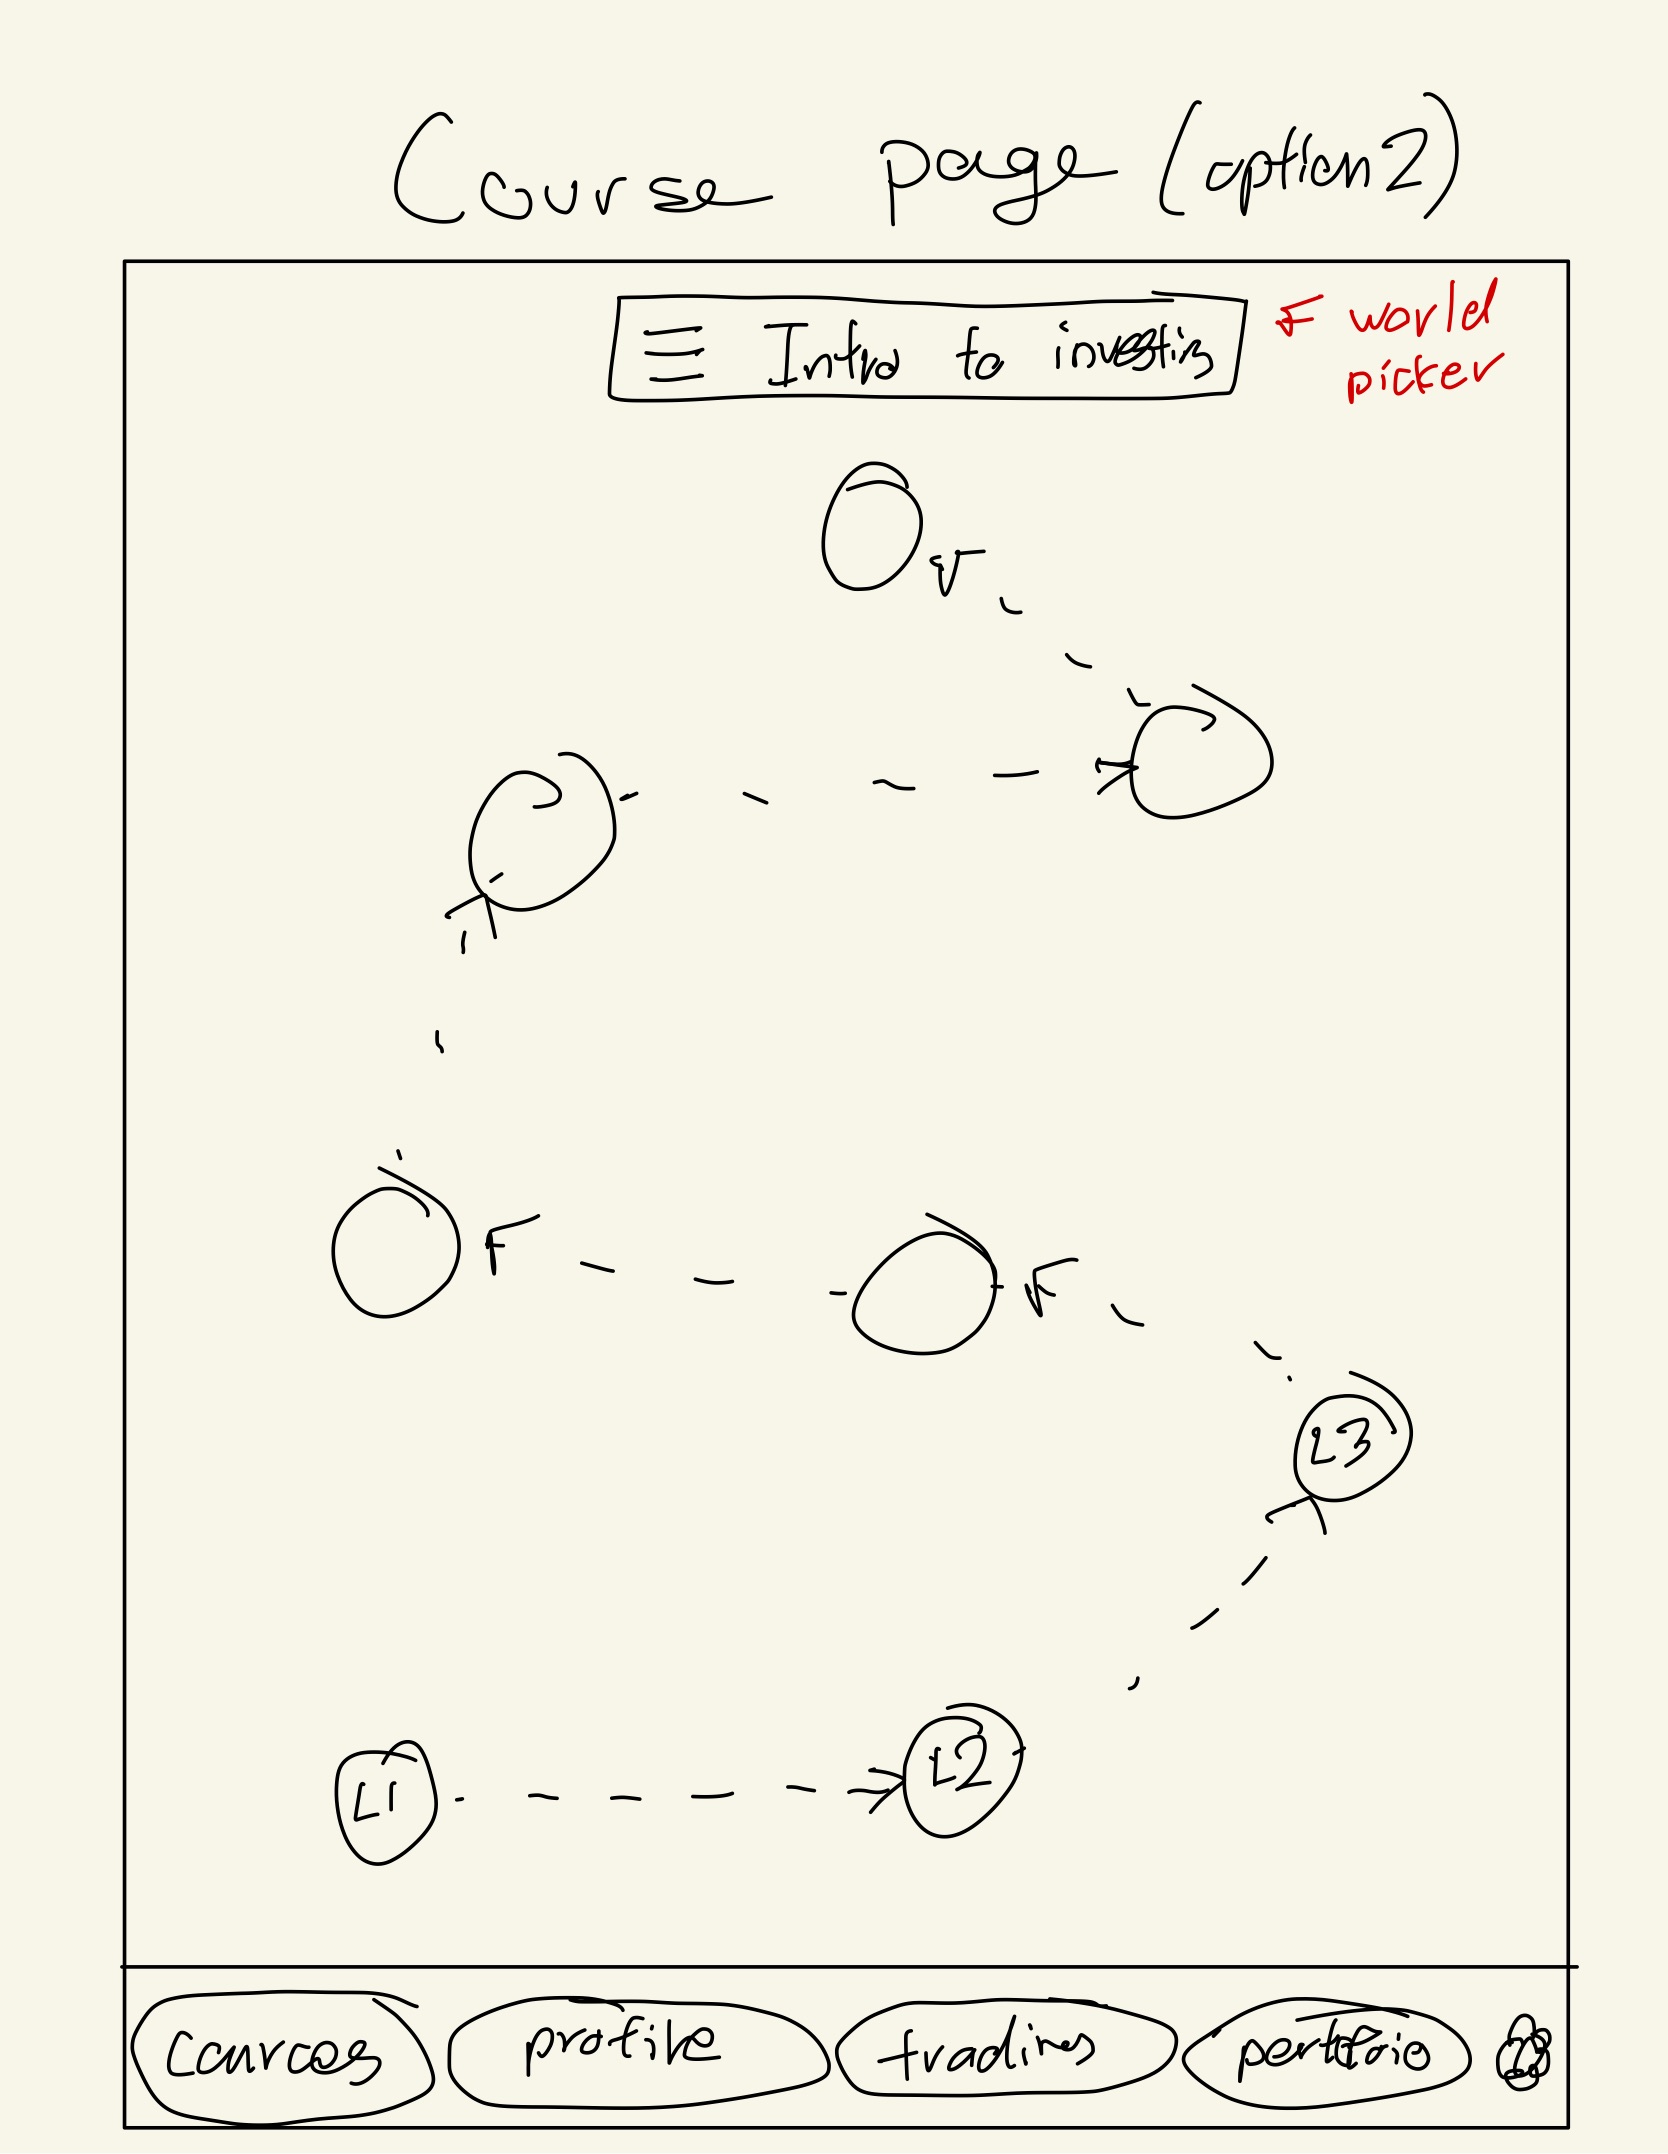 Course page (option 2)
Intro to investing
world
picker
L3
L2
L1
Cources profile trading portfolio